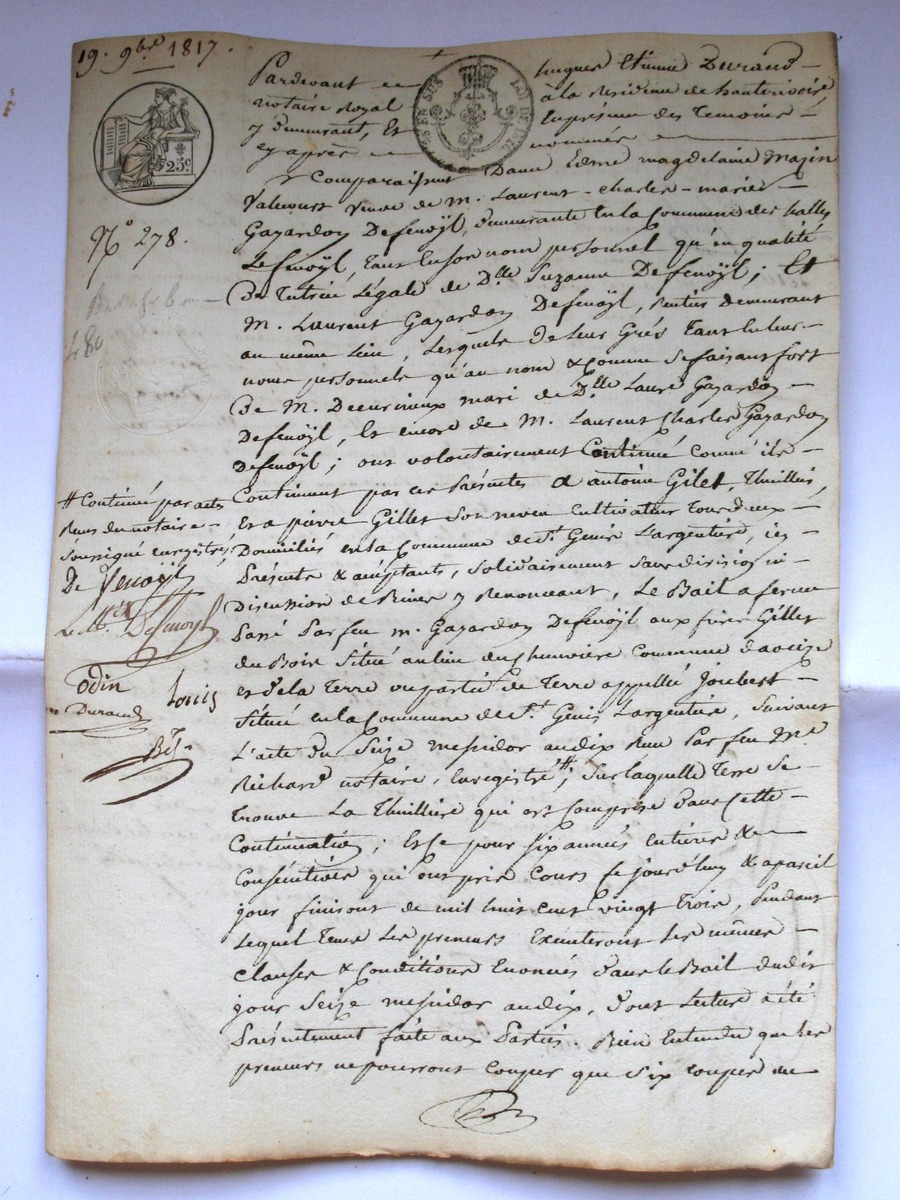 19. 9bre 1817.
Pardevant hugues Etienne Durand
notaire Royal à la Résidence de hauterivoire
y demeurant, Et En présence des Temoins
cy après nommés
25c.
Comparaissent Dame Edme magdelaine Majin
Valcourt veuve de M. Laurent-charles-marie
Gayardon Defenoÿl, demeurante En la Commune des halles
Lefenoÿl, tant En son nom personnel qu'en qualité
de Tutrice Légale de Dlle Suzanne Defenoÿl; Et
M. Laurent Gayardon Defenoÿl, rentier demeurant
au même lieu, Lesquels de leur Grés tant En leur
noms personnels qu'au nom & comme se faisant fort
de M. mari de Dlle Laure Gayardon
Defenoÿl, Et encore de M. Laurent Charles Gayardon
Defenoÿl; ont volontairement Continué comme ils
Continuent par ces Présentes a antoine Gilet Thuillier,
Et a pierre Gillet son neveu Cultivateur Tous deux
Domiciliés en la Commune de St. Genis Largentière, icy
Présents & acceptants, solidairement sans division ni
Discussion de Biens y Renonceant, Le Bail a ferme
Passé Par feu M. Gayardon Defenoÿl aux frères Gillet
du Bois situé au lieu du Commune daveize
et de la Terre ou partie de Terre appellée Joubert
située en la Commune de St. Genis Largentière, suivant
L'acte du Seize messidor an dix Reçu Par feu Me
Richard notaire, Enregistré #; sur laquelle Terre se
trouve La Thuillière qui est Comprise dans cette
Continuation; Et ce pour six années Entières &
Conséentives qui ont pris Cours ce jourd'huy & a pareil
jour finiront de mil huit cent vingt trois, Pendant
Lequel tems Les preneurs Exécuteront Les mêmes
Clauses & Conditions Enoncées dans le Bail dudit
jour Seize messidor an dix, dont Lecture a été
Présentement faite aux Parties. Bien Entendu que Les
preneurs ne pourront couper que Six coupes de
N° 278.
# Continué par actes
Reçus du notaire
soussigné enregistrés
De Fenoÿl
Defenoyl
Odin
Louis
Durand